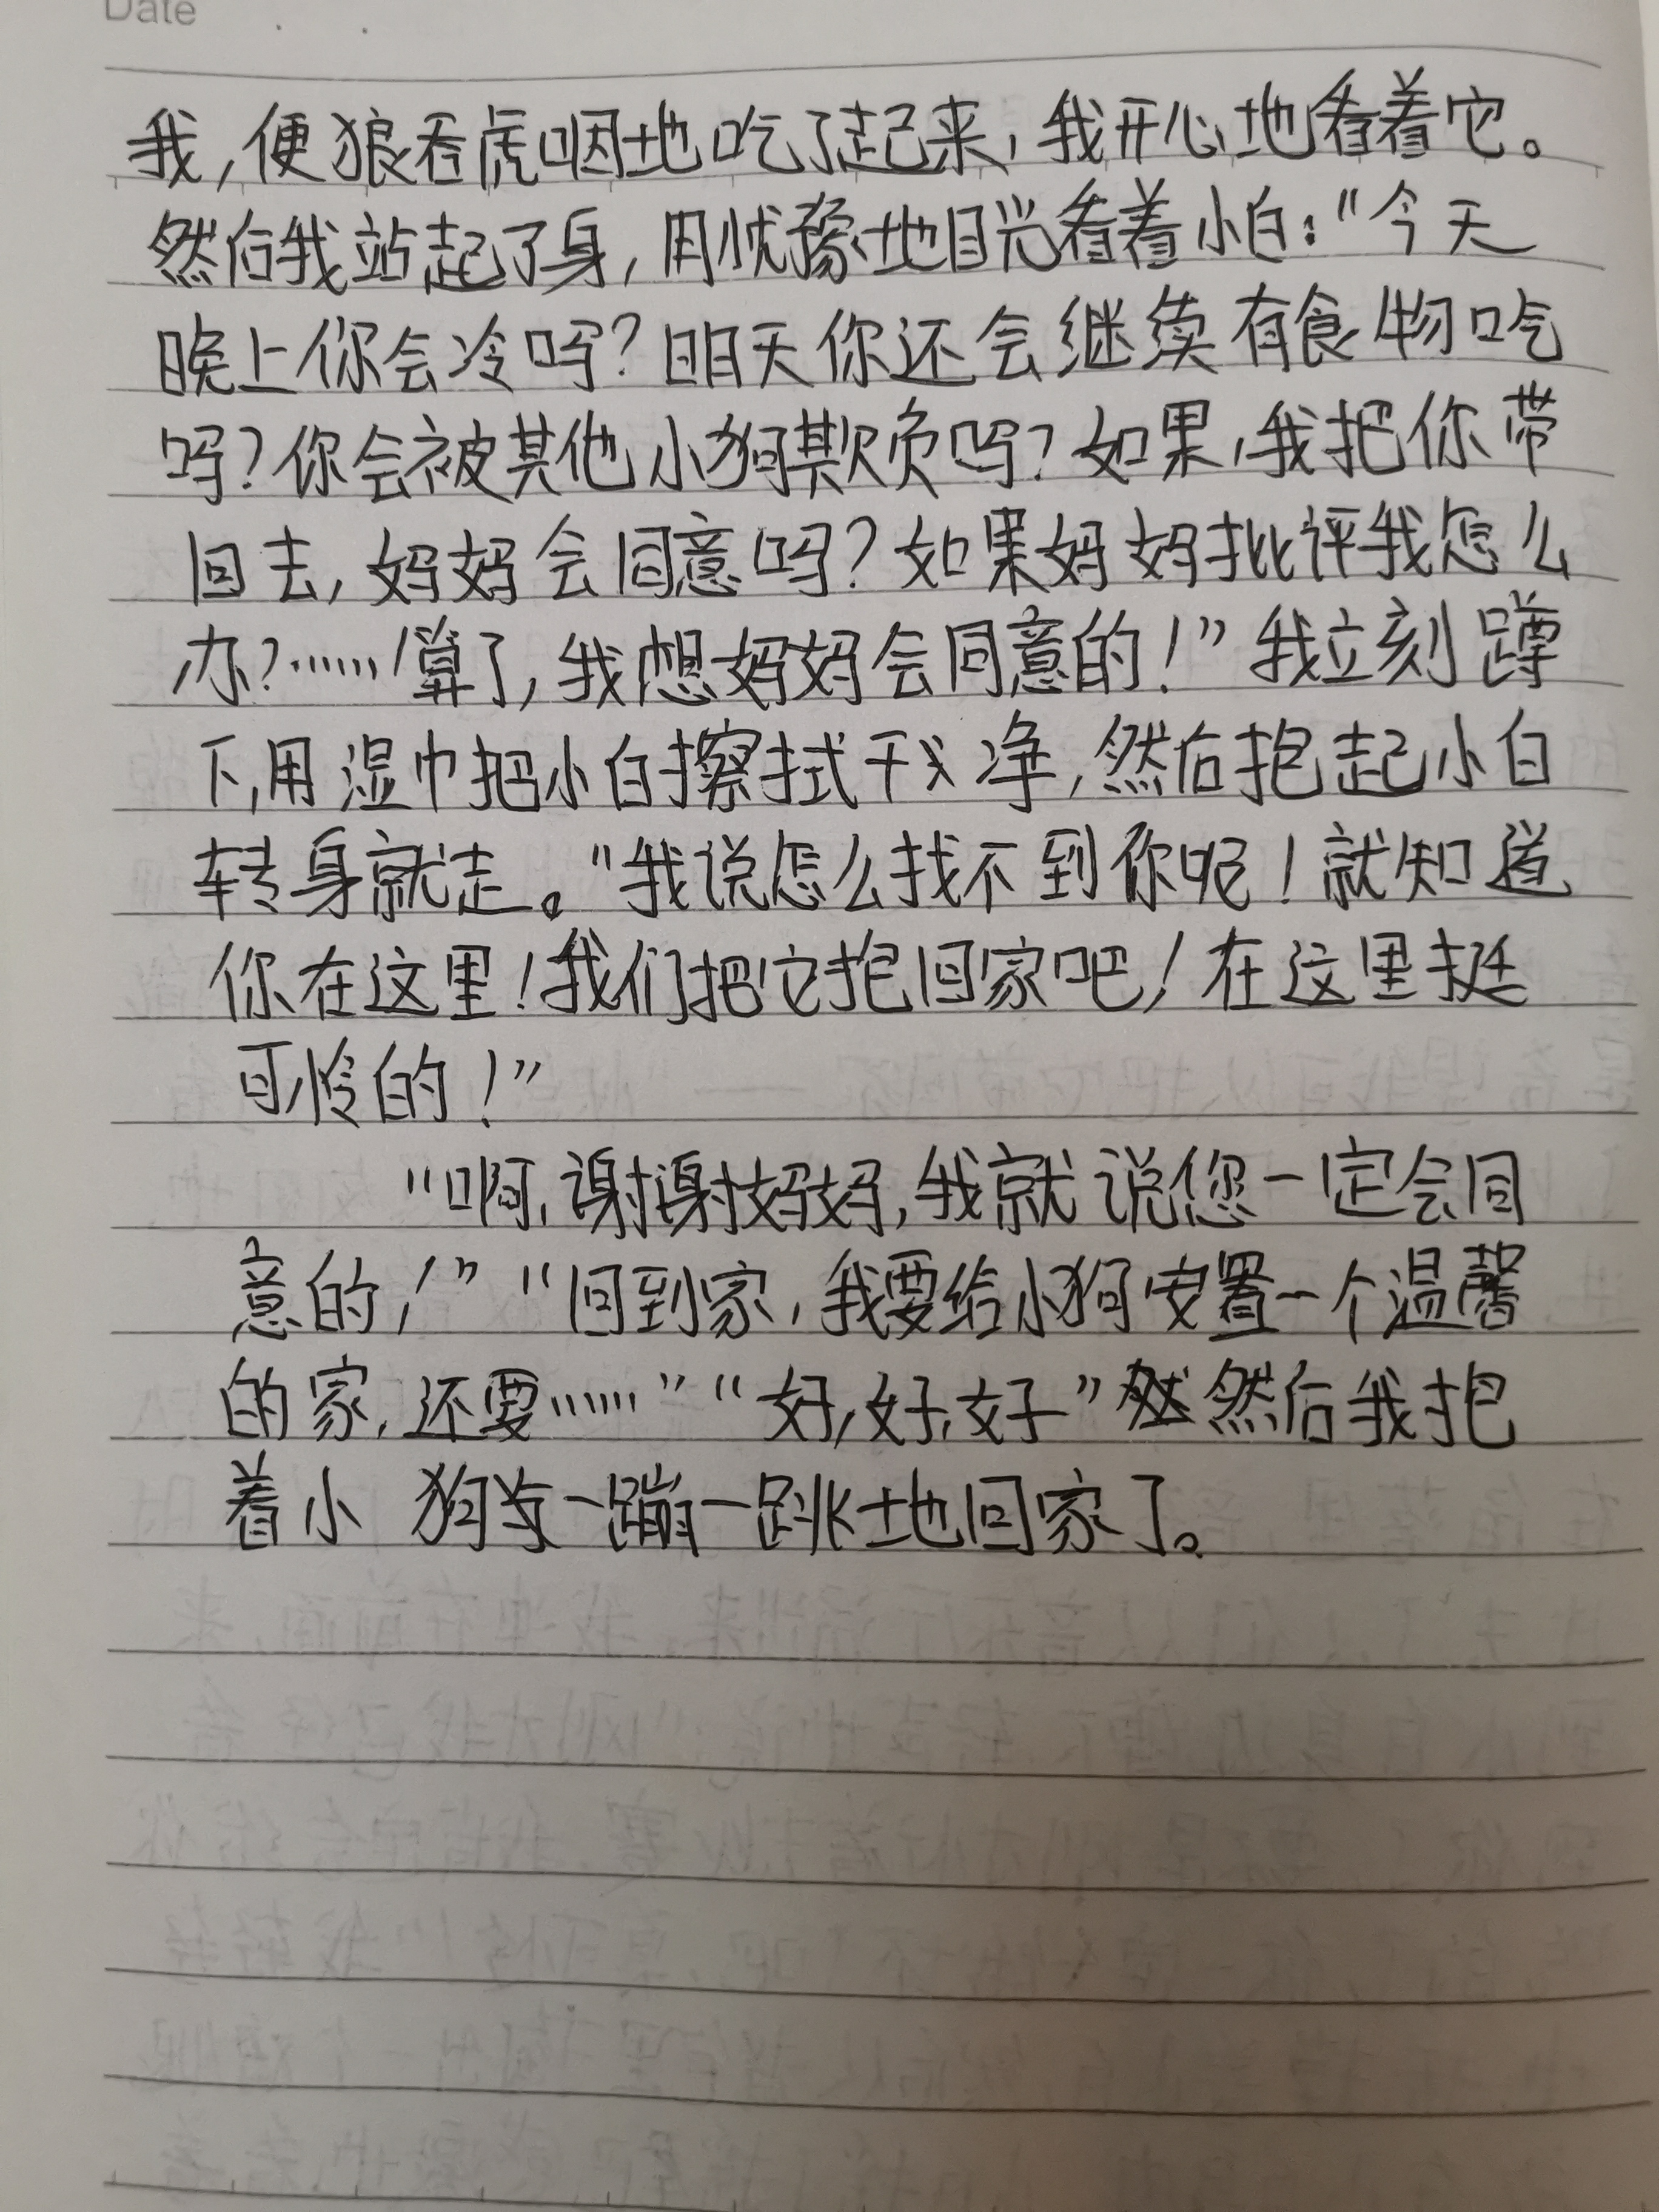 Date
我,便狼吞虎咽地吃了起来,我开心地看着它。
然后我站起了身,用忧豫地目光看着小白:“今天
晚上你会冷吗?明天你还会继续有食物吃
吗?你会被其他小狗欺负吗?如果,我把你带
回去,妈妈会同意吗?如果妈妈批评我怎么
办?……算了,我想妈妈会同意的!”我立刻蹲
下,用湿巾把小白擦拭干净,然后抱起小白
转身就走。“我说怎么找不到你呢!就知道
你在这里!我们把它抱回家吧!在这里挺
可怜的!”
“啊,谢谢妈妈,我就说您一定会同
意的!”“回到家,我要给小狗安置一个温馨
的家,还要……”“好,好,好”然后我抱
着小狗一蹦一跳地回家了。